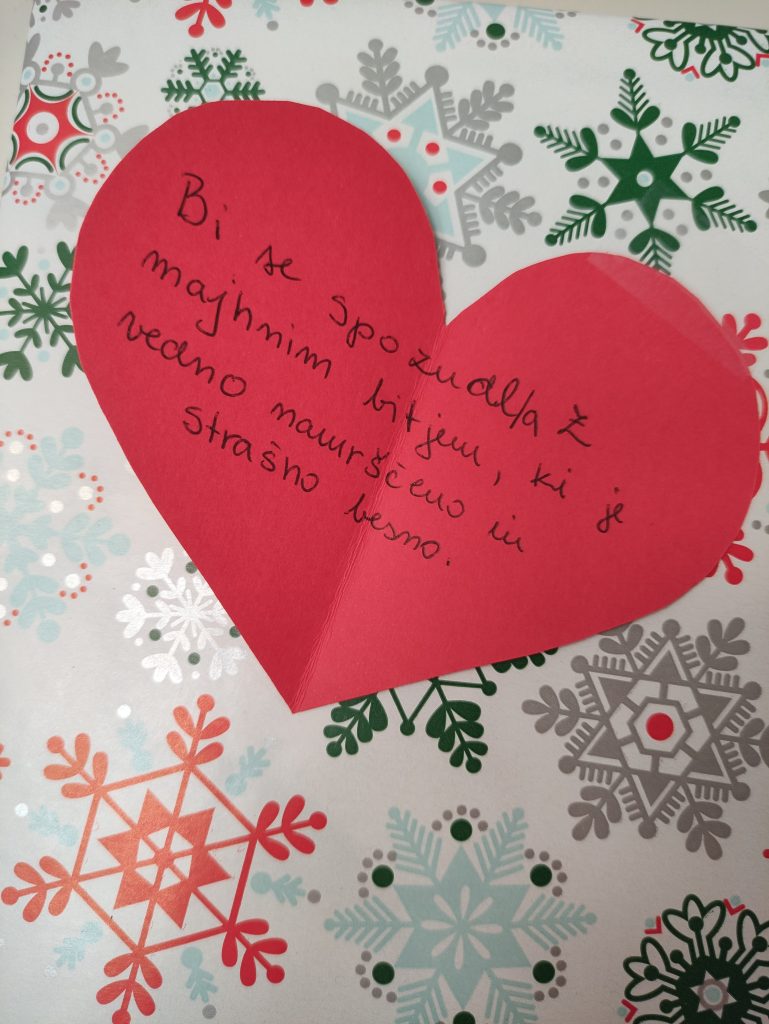 Bi se spoznal/a z
majhnim bitjem, ki je
vedno namrščeno in
strašno besno.